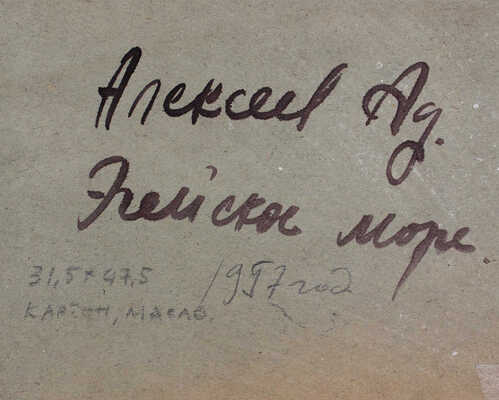 Алексеев Ад.
Эгейское море
31,5 × 47,5 1957 год
картон, масло.